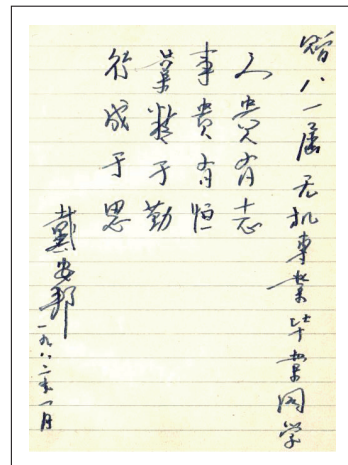 赠八一届无机专业毕业同学
人贵有志
事贵有恒
业精于勤
行成于思
戴安邦
一九八二年一月